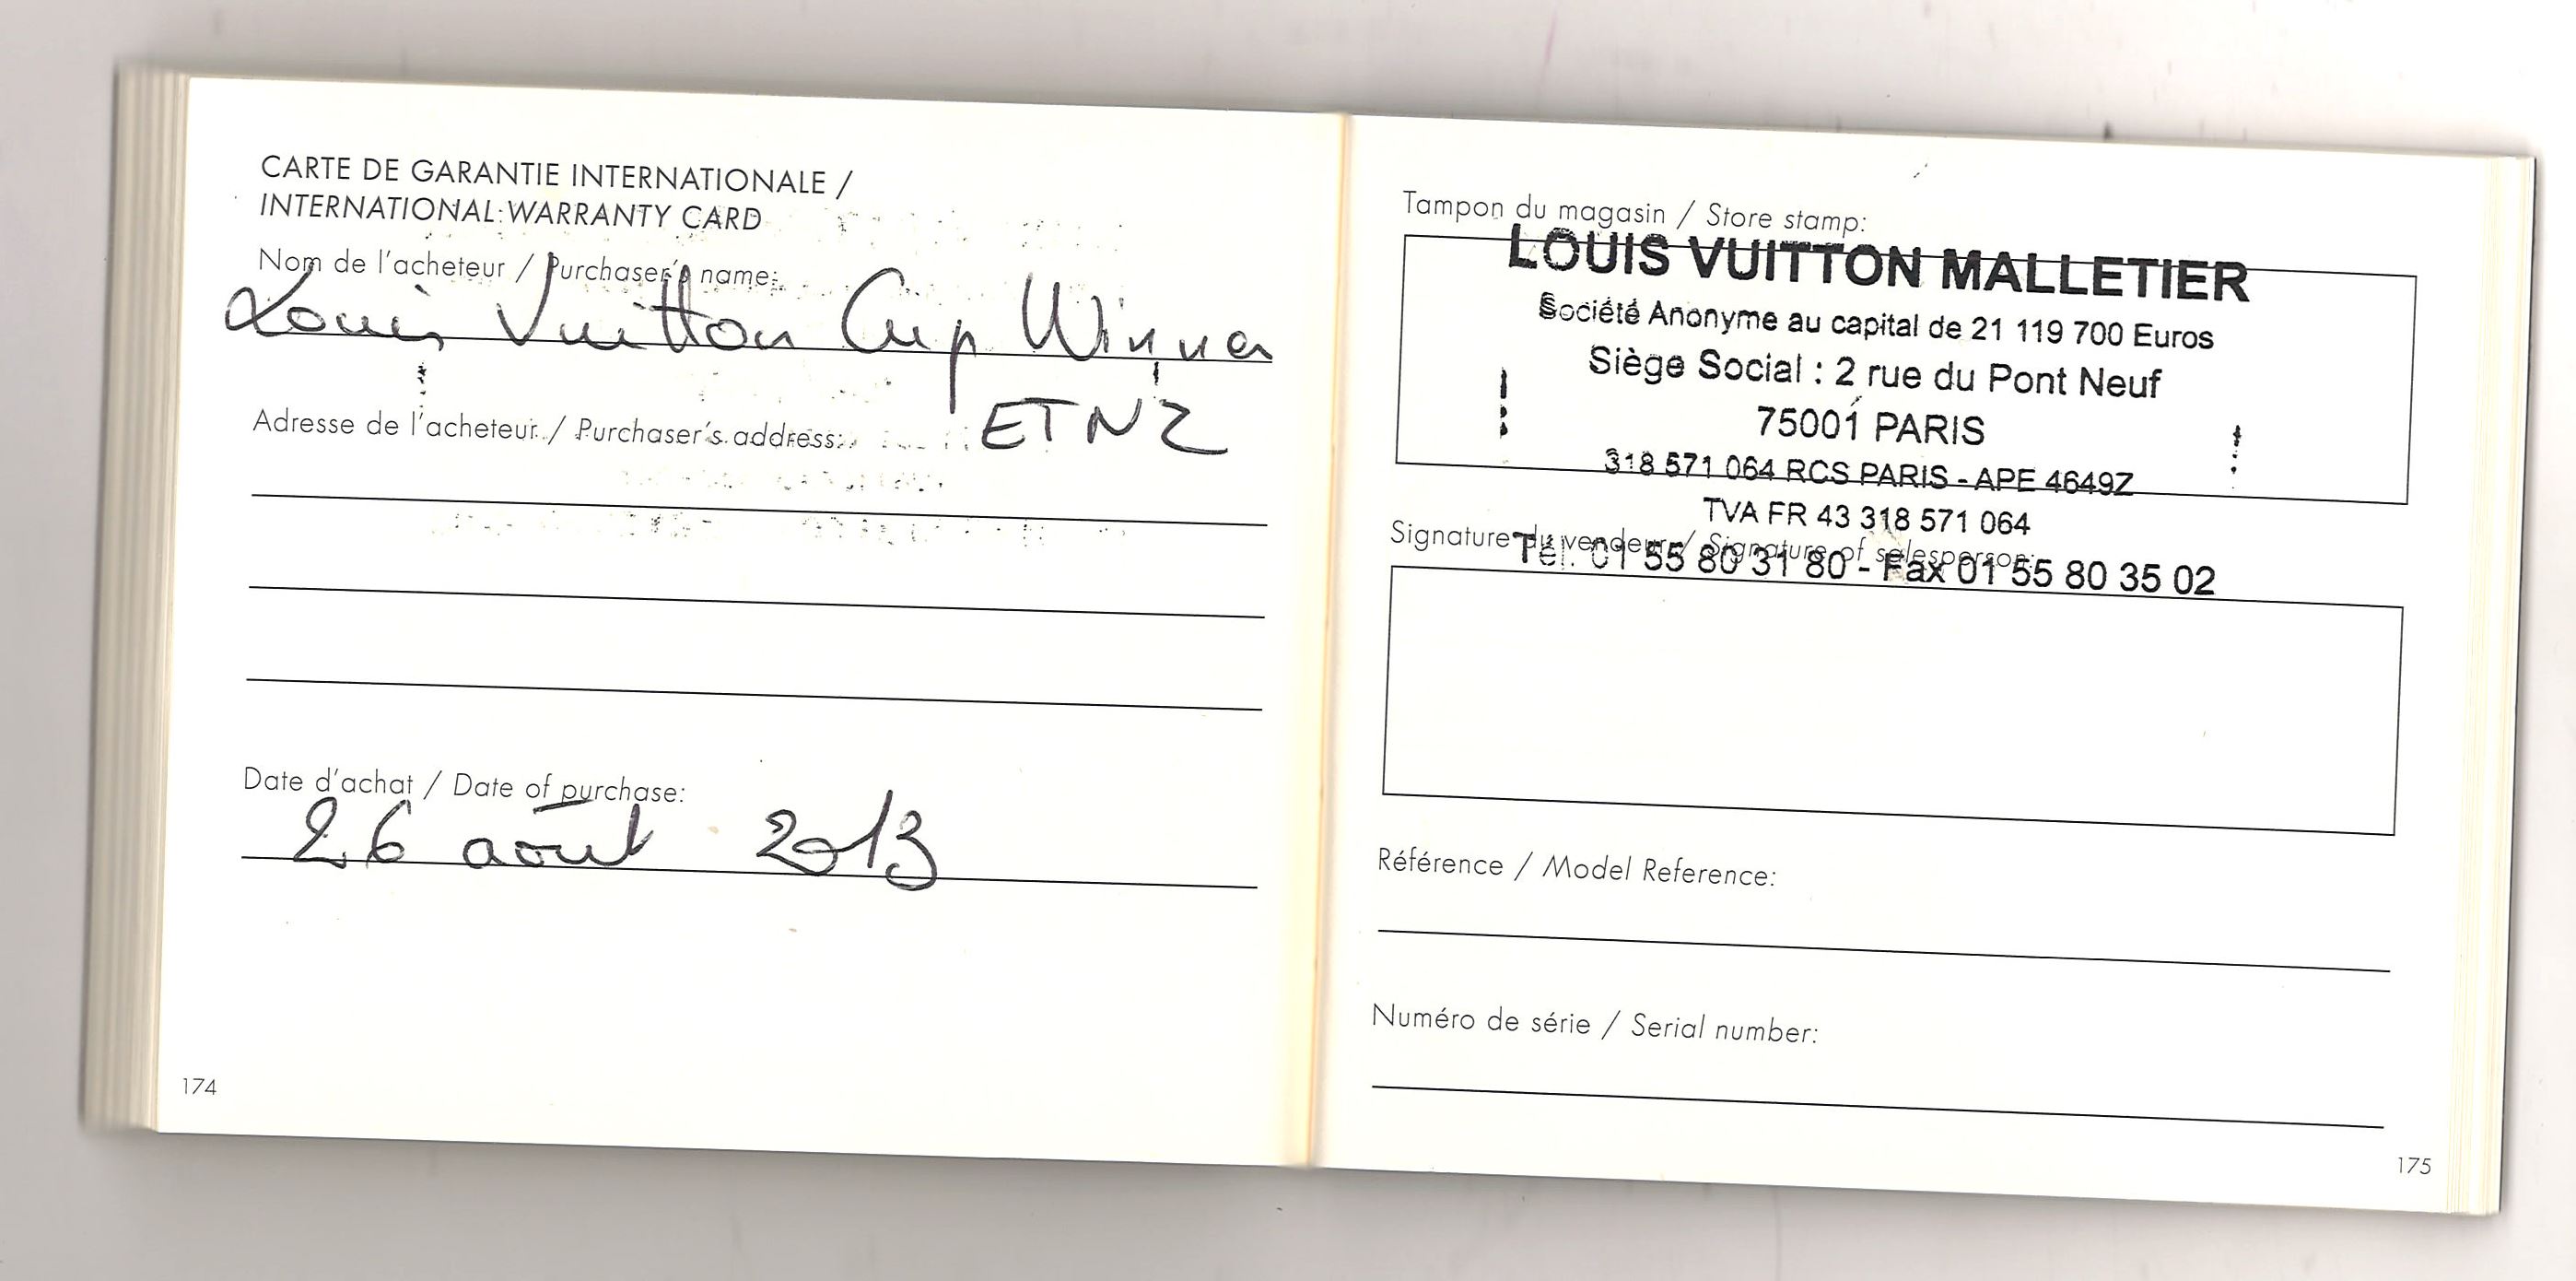 CARTE DE GARANTIE INTERNATIONALE /
INTERNATIONAL WARRANTY CARD
Nom de l'acheteur / Purchaser's name:
Louis Vuitton Cup Winner
ETNZ
Adresse de l'acheteur / Purchaser's address:
Date d'achat / Date of purchase:
26 août 2013
174
Tampon du magasin / Store stamp:
LOUIS VUITTON MALLETIER
Société Anonyme au capital de 21 119 700 Euros
Siège Social : 2 rue du Pont Neuf
75001 PARIS
318 571 064 RCS PARIS - APE 4649Z
TVA FR 43 318 571 064
Signature du vendeur / Signature of salesperson:
Tél. 01 55 80 31 80 - Fax 01 55 80 35 02
Référence / Model Reference:
Numéro de série / Serial number:
175